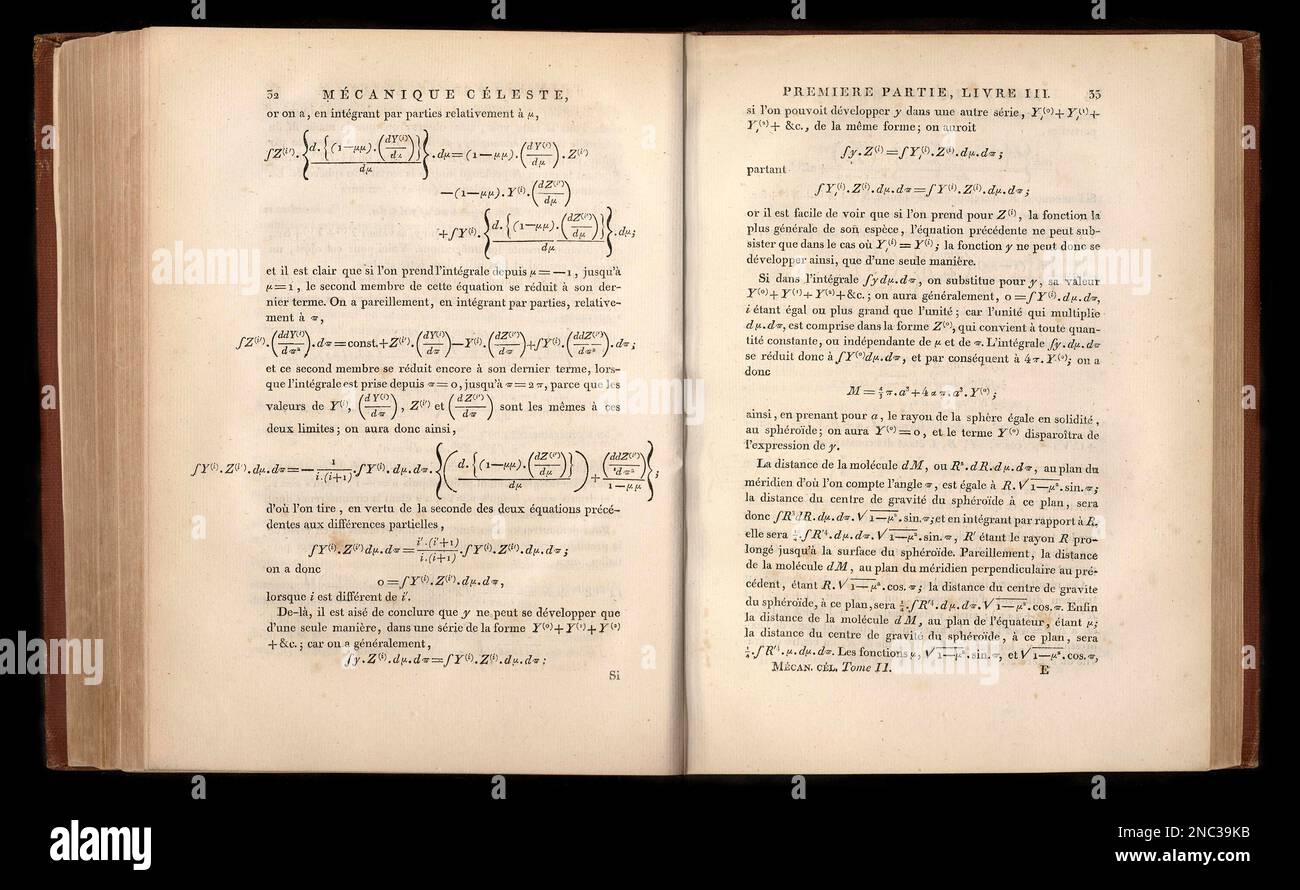 32 MÉCANIQUE CÉLESTE,
or on a, en intégrant par parties relativement à μ,
∫Z⁽ⁱ'⁾.{d.{(1—μμ).(dY⁽ⁱ⁾/dμ)}/dμ}.dμ=(1—μμ).(dY⁽ⁱ⁾/dμ).Z⁽ⁱ'⁾
—(1—μμ).Y⁽ⁱ⁾.(dZ⁽ⁱ'⁾/dμ)
+∫Y⁽ⁱ⁾.{d.{(1—μμ).(dZ⁽ⁱ'⁾/dμ)}/dμ}.dμ;
et il est clair que si l'on prend l'intégrale depuis μ=—1, jusqu'à
μ=1, le second membre de cette équation se réduit à son der-
nier terme. On a pareillement, en intégrant par parties, relative-
ment à ϖ,
∫Z⁽ⁱ'⁾.(ddY⁽ⁱ⁾/dϖ²).dϖ=const.+Z⁽ⁱ'⁾.(dY⁽ⁱ⁾/dϖ)—Y⁽ⁱ⁾.(dZ⁽ⁱ'⁾/dϖ)+∫Y⁽ⁱ⁾.(ddZ⁽ⁱ'⁾/dϖ²).dϖ;
et ce second membre se réduit encore à son dernier terme, lors-
que l'intégrale est prise depuis ϖ=0, jusqu'à ϖ=2π, parce que les
valeurs de Y⁽ⁱ⁾, (dY⁽ⁱ⁾/dϖ), Z⁽ⁱ'⁾ et (dZ⁽ⁱ'⁾/dϖ) sont les mêmes à ces
deux limites; on aura donc ainsi,
∫Y⁽ⁱ⁾.Z⁽ⁱ'⁾.dμ.dϖ=—1/i.(i+1).∫Y⁽ⁱ⁾.dμ.dϖ.{(d.{(1—μμ).(dZ⁽ⁱ'⁾/dμ)}/dμ)+(ddZ⁽ⁱ'⁾/dϖ²)/1—μμ};
d'où l'on tire, en vertu de la seconde des deux équations précé-
dentes aux différences partielles,
∫Y⁽ⁱ⁾.Z⁽ⁱ'⁾dμ.dϖ=i'.(i'+1)/i.(i+1).∫Y⁽ⁱ⁾.Z⁽ⁱ'⁾.dμ.dϖ;
on a donc
0=∫Y⁽ⁱ⁾.Z⁽ⁱ'⁾.dμ.dϖ,
lorsque i est différent de i'.
De-là, il est aisé de conclure que y ne peut se développer que
d'une seule manière, dans une série de la forme Y⁽⁰⁾+Y⁽¹⁾+Y⁽²⁾
+&c.; car on a généralement,
∫y.Z⁽ⁱ⁾.dμ.dϖ=∫Y⁽ⁱ⁾.Z⁽ⁱ⁾.dμ.dϖ:
Si
PREMIERE PARTIE, LIVRE III. 33
si l'on pouvoit développer y dans une autre série, Y,⁽⁰⁾+Y,⁽¹⁾+
Y,⁽²⁾+ &c., de la même forme; on auroit
∫y.Z⁽ⁱ⁾=∫Y,⁽ⁱ⁾.Z⁽ⁱ⁾.dμ.dϖ;
partant
∫Y,⁽ⁱ⁾.Z⁽ⁱ⁾.dμ.dϖ=∫Y⁽ⁱ⁾.Z⁽ⁱ⁾.dμ.dϖ;
or il est facile de voir que si l'on prend pour Z⁽ⁱ⁾, la fonction la
plus générale de son espèce, l'équation précédente ne peut sub-
sister que dans le cas où Y,⁽ⁱ⁾=Y⁽ⁱ⁾; la fonction y ne peut donc se
développer ainsi, que d'une seule manière.
Si dans l'intégrale ∫ydμ.dϖ, on substitue pour y, sa valeur
Y⁽⁰⁾+Y⁽¹⁾+Y⁽²⁾+&c.; on aura généralement, 0=∫Y⁽ⁱ⁾.dμ.dϖ,
i étant égal ou plus grand que l'unité; car l'unité qui multiplie
dμ.dϖ, est comprise dans la forme Z⁽⁰⁾, qui convient à toute quan-
tité constante, ou indépendante de μ et de ϖ. L'intégrale ∫y.dμ.dϖ
se réduit donc à ∫Y⁽⁰⁾dμ.dϖ, et par conséquent à 4π.Y⁽⁰⁾; on a
donc
M=4/3π.a³+4απ.a³.Y⁽⁰⁾;
ainsi, en prenant pour a, le rayon de la sphère égale en solidité,
au sphéroïde; on aura Y⁽⁰⁾=0, et le terme Y⁽⁰⁾ disparoîtra de
l'expression de y.
La distance de la molécule dM, ou R².dR.dμ.dϖ, au plan du
méridien d'où l'on compte l'angle ϖ, est égale à R.√1—μ².sin.ϖ;
la distance du centre de gravité du sphéroïde à ce plan, sera
donc ∫R³dR.dμ.dϖ.√1—μ².sin.ϖ; et en intégrant par rapport à R,
elle sera ¼.∫R'⁴.dμ.dϖ.√1—μ².sin.ϖ, R' étant le rayon R pro-
longé jusqu'à la surface du sphéroïde. Pareillement, la distance
de la molécule dM, au plan du méridien perpendiculaire au pré-
cédent, étant R.√1—μ².cos.ϖ; la distance du centre de gravite
du sphéroïde, à ce plan, sera ¼.∫R'⁴.dμ.dϖ.√1—μ².cos.ϖ. Enfin
la distance de la molécule dM, au plan de l'équateur, étant μ;
la distance du centre de gravité du sphéroïde, à ce plan, sera
¼.∫R'⁴.μ.dμ.dϖ. Les fonctions μ, √1—μ².sin.ϖ, et √1—μ².cos.ϖ,
MÉCAN. CÉL. Tome II. E
alamy
Image ID: 2NC39KB
www.alamy.com